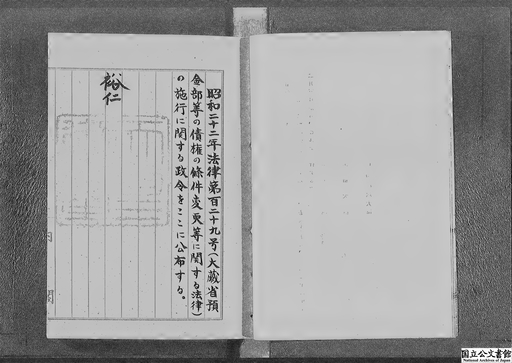 昭和二十二年法律第百二十九号(大蔵省預
金部等の債権の條件変更等に関する法律)
の施行に関する政令をここに公布する。
裕仁
内閣
国立公文書館
National Archives of Japan